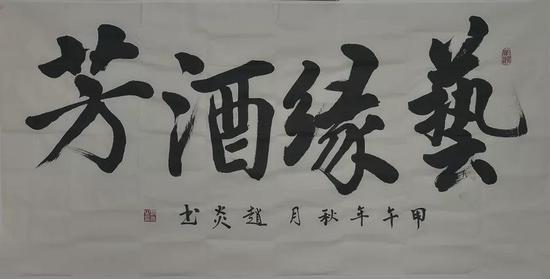 藝缘酒芳
甲午年秋月趙炎书